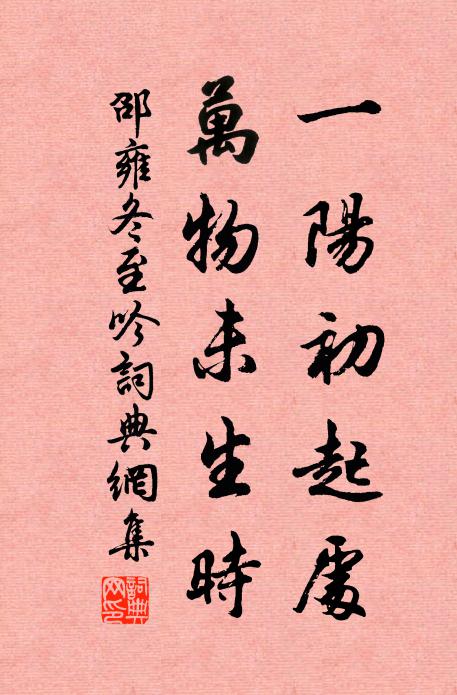 一陽初起處
萬物未生時
邵雍冬至吟詞典網集
詞典
网印